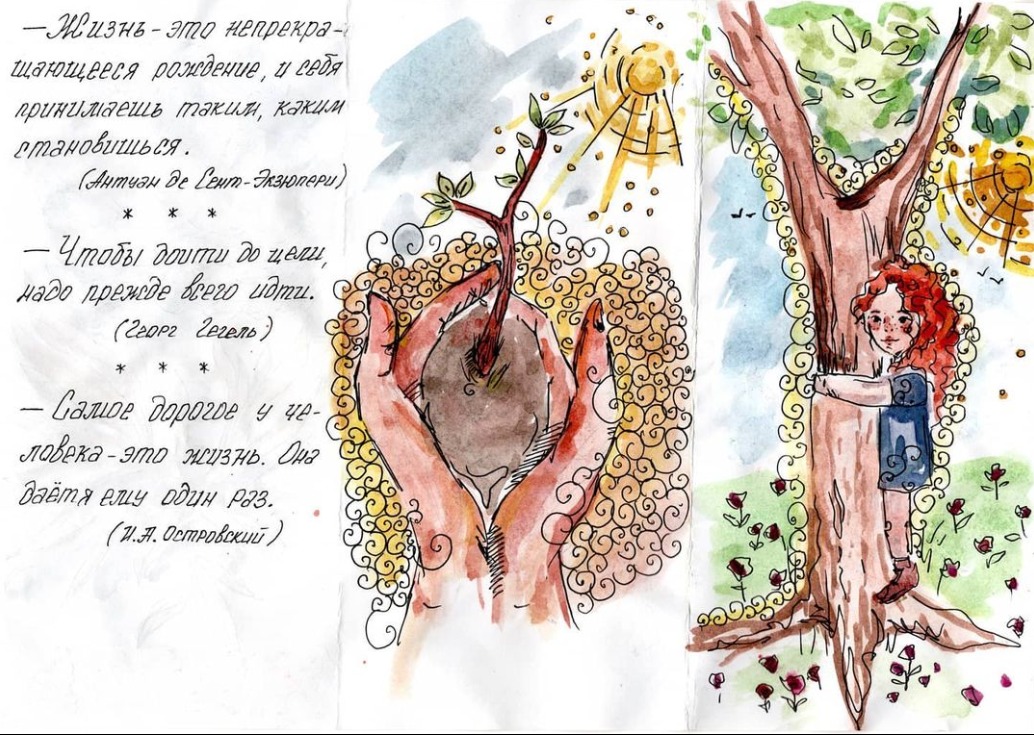 — Жизнь - это непрекра-
щающееся рождение, и себя
принимаешь таким, каким
становишься.
(Антуан де Сент-Экзюпери)
* * *
— Чтобы дойти до цели,
надо прежде всего идти.
(Георг Гегель)
* * *
— Самое дорогое у че-
ловека - это жизнь. Она
даётя ему один раз.
(Н.А. Островский)